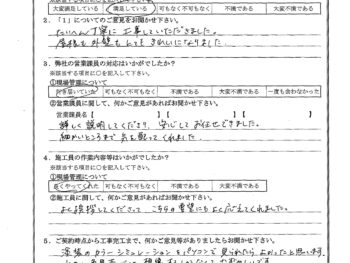 大変満足している 満足している 可もなく不可もなく 不満である 大変不満である
2. 「1」についてのご意見をお聞かせ下さい。
たいへん丁寧に工事していただきました。
屋根も外壁もとてもきれいになりました。
3. 弊社の営業議員の対応はいかがでしたか？
※該当する項目に○を記入して下さい。
①現場管理について
行き届いていた 可もなく不可もなく 不満である 大変不満である 一度も会わなかった
②営業議員に関して、何かご意見があればお聞かせ下さい。
営業議員名【 】 営業議員名【
詳しく説明してくださり、安心してお任せできました。
細かいところまで気を配ってくれました。
4. 施工員の作業内容等はいかがでしたか？
※該当する項目に○を記入して下さい。
①現場管理について
良くやってくれた 可もなく不可もなく 不満である 大変不満である
②施工員に関して、何かご意見があればお聞かせ下さい。
よく挨拶してくださって こちらの要望にもよく応えてくれました。
5. ご契約時点から工事完工まで、何かご意見等がありましたらお聞かせ下さい。
塗装のカラーシミュレーションをパソコンで見られたらよかったと思います。